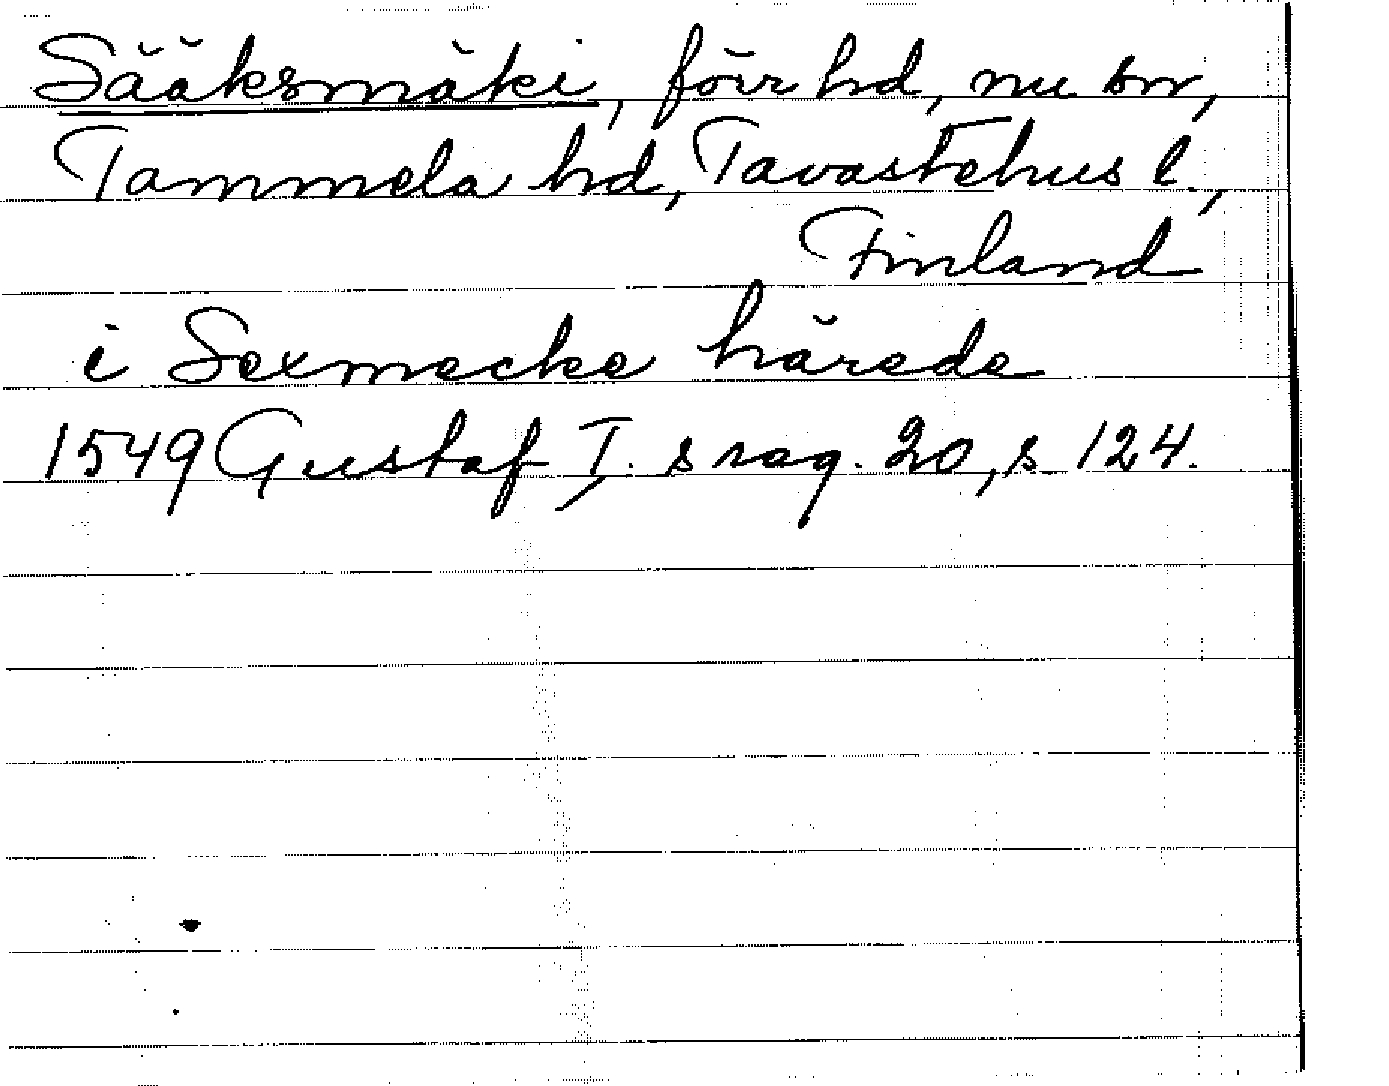 Sääksmäki, förr hd, nu sn,
Tammela hd, Tavastehus l.,
Finland
i Sexmecke härede
1549 Gustaf I. s rag. 20, s. 124.